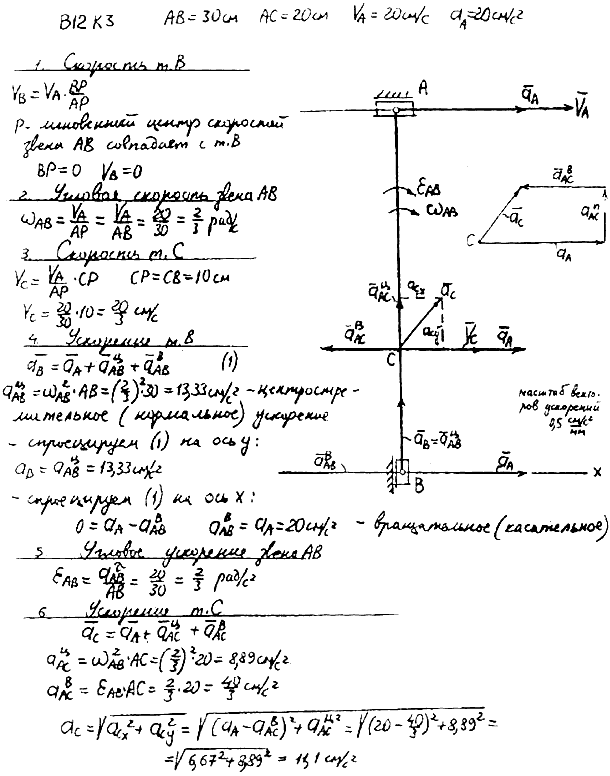 В12 К3 AB=30см AC=20см V̄A=20см/с aA=20см/с²
1. Скорость т.В
VB = VA · BP/AP
P - мгновенный центр скоростей
звена АВ совпадает с т.В
BP=0 VB=0
2. Угловая скорость звена АВ
ωAB = VA/AP = VA/AB = 20/30 = 2/3 рад/с
3. Скорость т.С
VC = VA/AP · CP CP=CB=10см
VC = 20/30 · 10 = 20/3 см/с
4. Ускорение т.В
āB = āA + āАВ^ц + āАВ^В (1)
aАВ^ц = ωAB² · AB = (2/3)² · 30 = 13,33 см/с² – центростре-
мительное (нормальное) ускорение
- спроецируем (1) на ось у:
aB = aАВ^ц = 13,33 см/с²
- спроецируем (1) на ось х:
0 = aA - aАВ^В aАВ^В = aA = 20 см/с² – вращательное (касательное)
5 Угловое ускорение звена АВ
εAB = aAB^τ/AB = 20/30 = 2/3 рад/с²
6. Ускорение т.С
āC = āA + āАС^ц + āАС^В
aАС^ц = ωAB² · AC = (2/3)² · 20 = 8,89 см/с²
aАС^В = εAC · AC = 2/3 · 20 = 40/3 см/с²
aC = √(aCx² + aCy²) = √((aA - aАС^В)² + aАС^ц²) = √((20 - 40/3)² + 8,89²) =
= √(6,67² + 8,89²) = 11,1 см/с²
A
āA
V̄A
εAB
ωAB
āАС^В
āC
aАС^n
C
aA
āАС^ц
aCx
āC
āАС^В
aCy
V̄C
āA
C
масштаб векто-
ров ускорений
0,5 см/с²/мм
āB=āАВ^ц
āАВ^В
āA
x
B